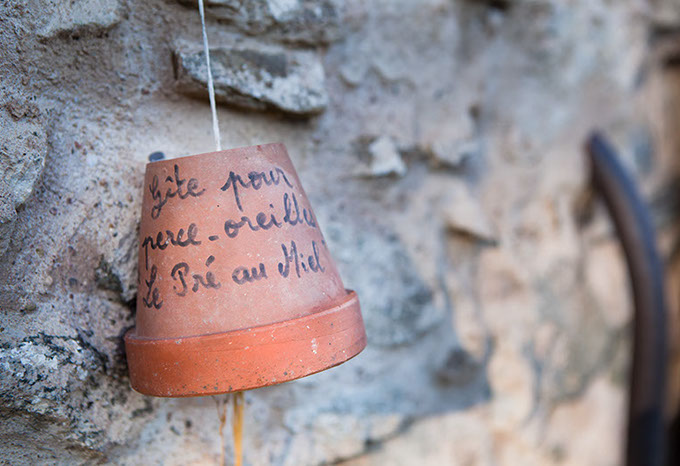 Gîte pour
perce-oreilles
Le Pré au Miel